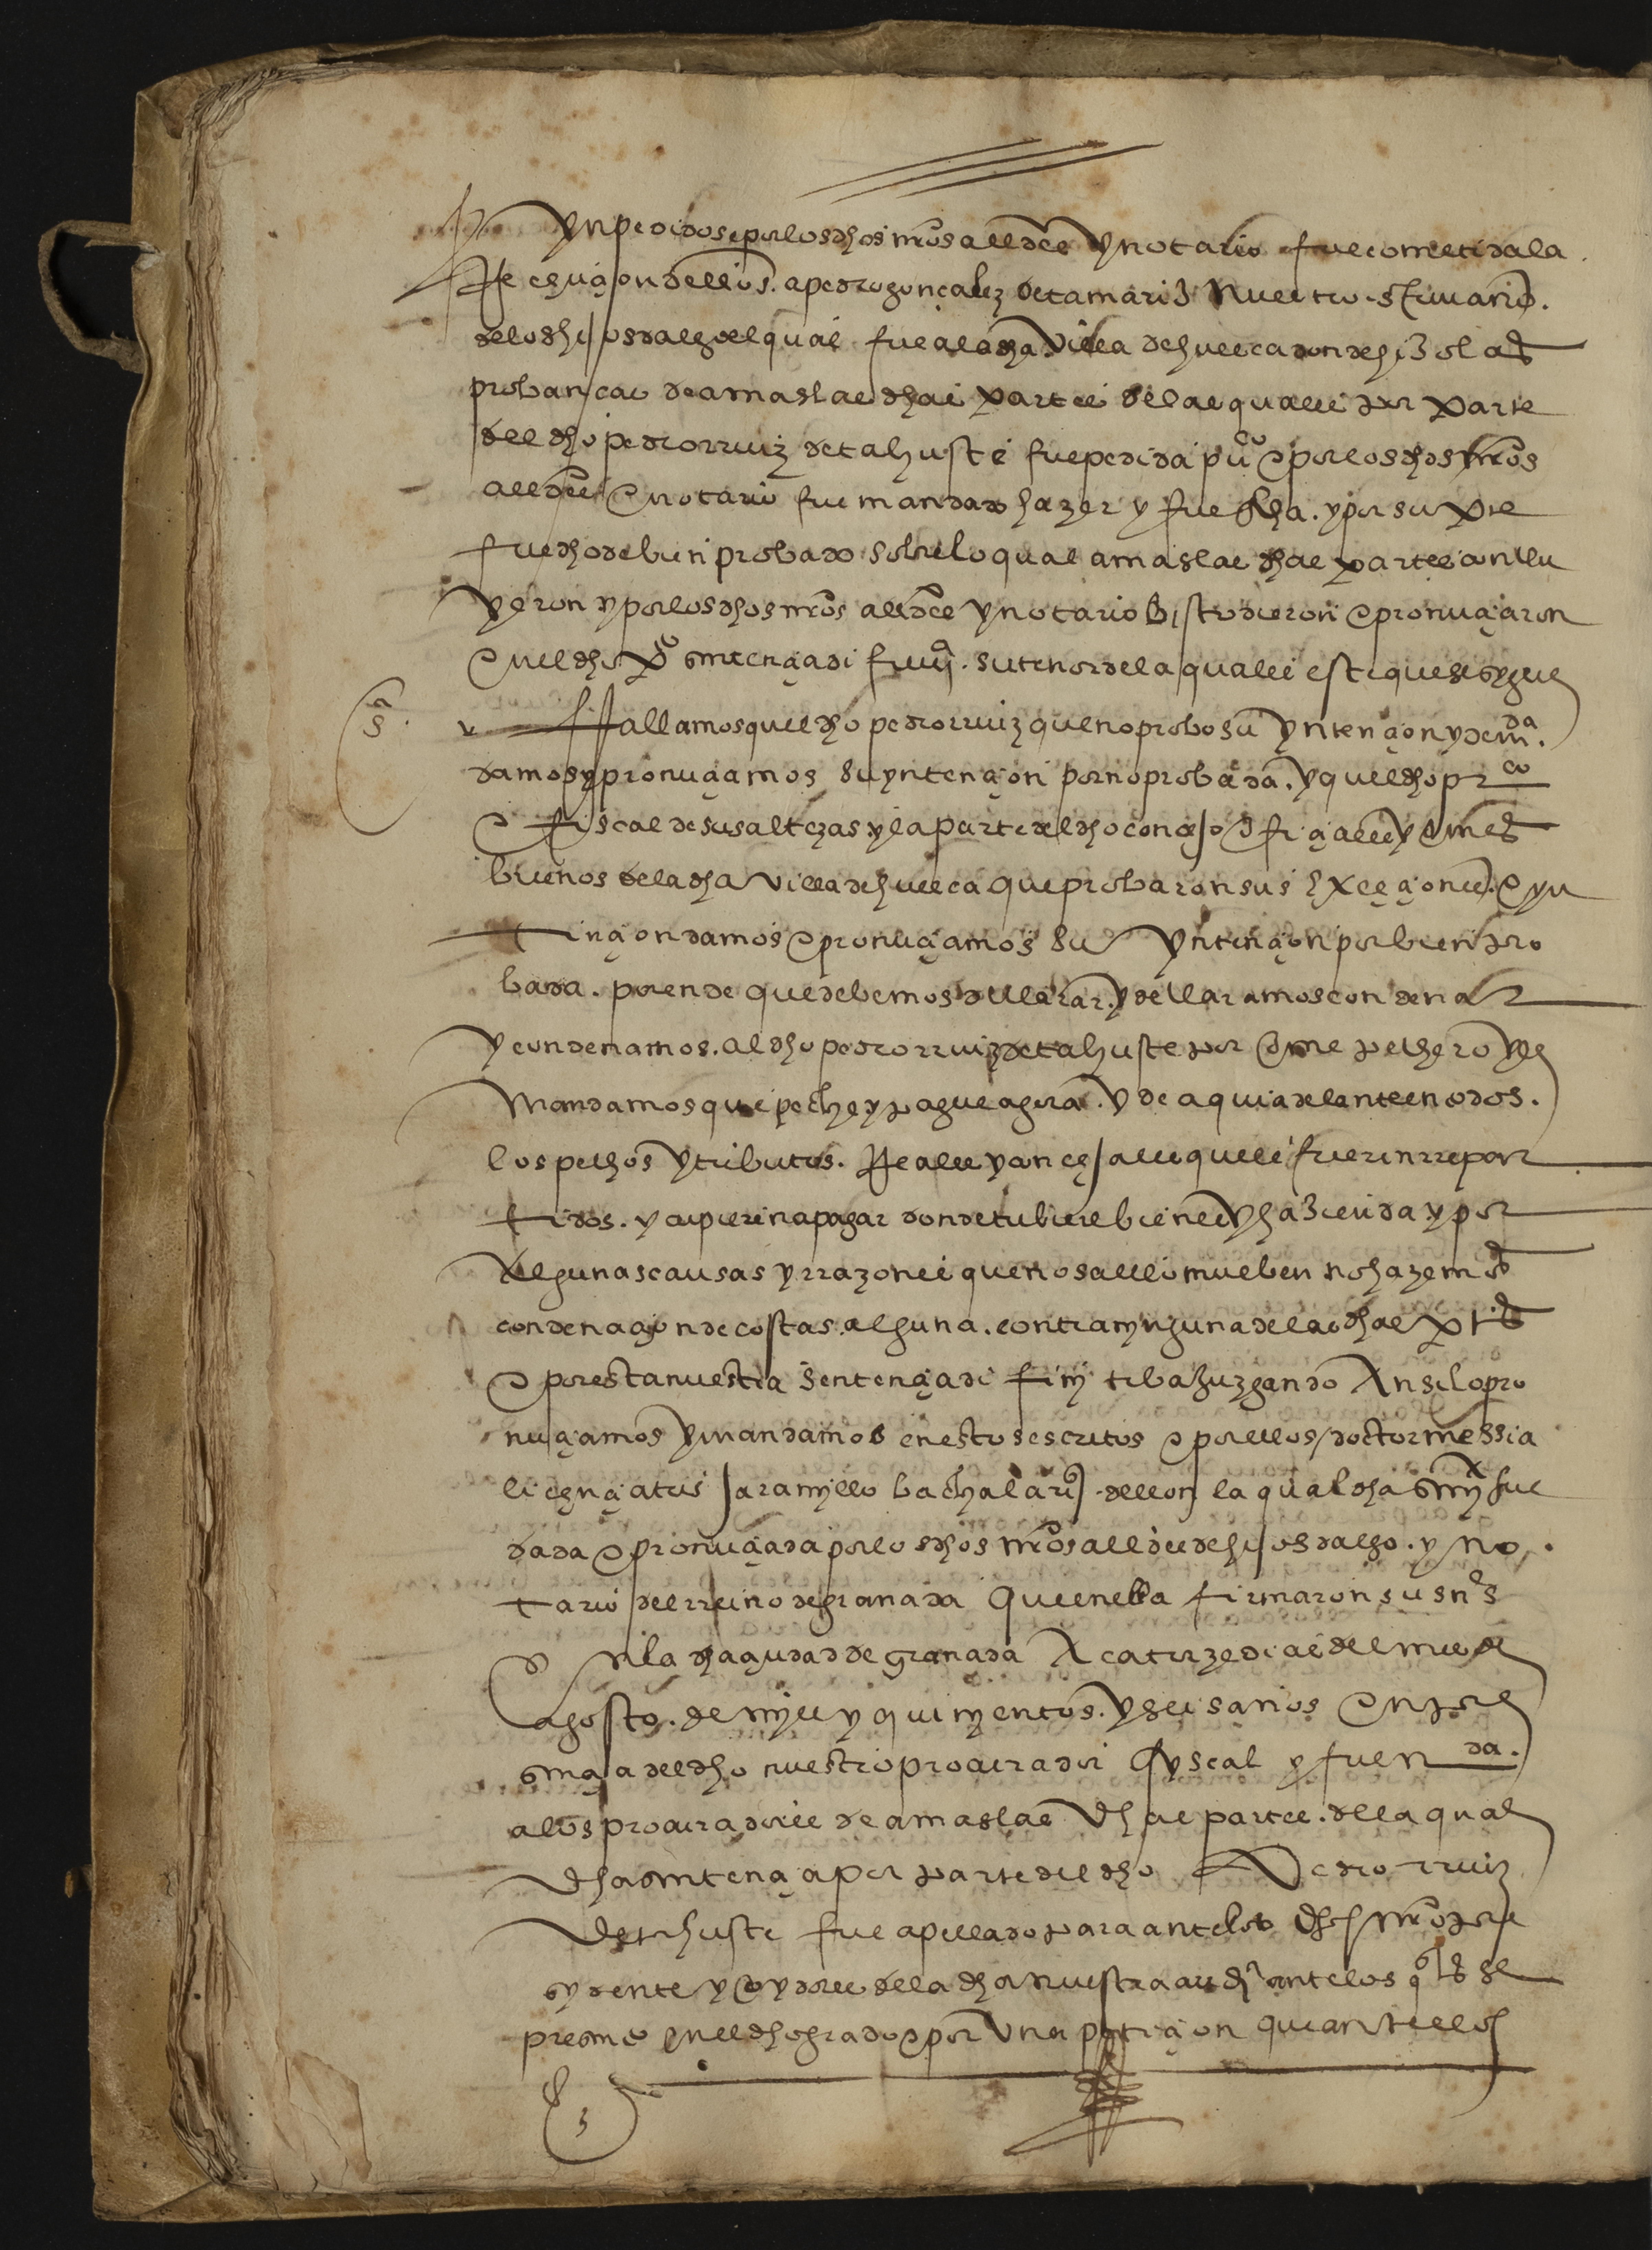 ynpedidos e por los dhos nros alldes y notario fue cometida la
Reçeuçion dellos. a pedro gonçalez de tamariz nuestro escriuano.
delos hijosdalgo el qual fue a la dha villa de huesca donde hizo las
probanças de amas las dhas partes de las quales por parte
del dho pedro rruiz de tahuste fue pedida puon e por los dhos nros
alldes e notario fue mandado hazer y fue fha. y por su pte
fue dho de bien probado sobre lo qual amas las dhas partes conclu
yeron y por los dhos nros alldes y notario bisto dieron e pronuçiaron
en el dho pto sentençia difinj. su tenor de la qual es este que se sygue
sa
v fallamos que el dho pedro rruiz que no probo su yntençion y demda.
damos y pronuçiamos su yntençion por no probada. y que el dho prco
e fiscal de sus altezas y la parte del dho conçejo ofiçiales y omes
buenos de la dha villa de huesca que probaron sus exçeçiones. e yn
tençion damos e pronuçiamos su yntençion por bien pro
bada. por ende que debemos de clarar. y declaramos condenar
y condenamos. al dho pedro rruiz de tahuste por ome pechero y le
mandamos que peche y pague agora. y de aqui adelante en todos.
los pechos y tributos. Reales y conçejales que le fueren rrepar
tidos. y cupieren a pagar donde tubiere bienes y hazienda y por
algunas causas y rrazones que nos a ello mueben no hazemos
condenaçion de costas. alguna. contra nynguna de las dhas ptes
e por esta nuestra sentençia difinjtiba juzgando Ansi lo pro
nuçiamos y mandamos en estos escritos e por ellos doctor messia
liçençiatus jaramyllo bachalarius de leon la qual dha snya fue
dada e pronuçiada por los dhos nros alldes de hijosdalgo. y no
tario del rreino de granada que en ella firmaron sus nos
en la dha çiudad de granada A catorze dias del mes de
agosto. de mjll y quinyentos. y seis años en pre
sençia del dho nuestro procurador fyscal y fue nda.
a los procuradores de amas las dhas partes. de la qual
dha sentençia por parte del dho Pedro rruiz
de tahuste fue apellado para ante los dhos nros pre
sydente y oydores de la dha nuestra audia ante los qles se
presento en el dho grado e por vna petiçion que ante ellos